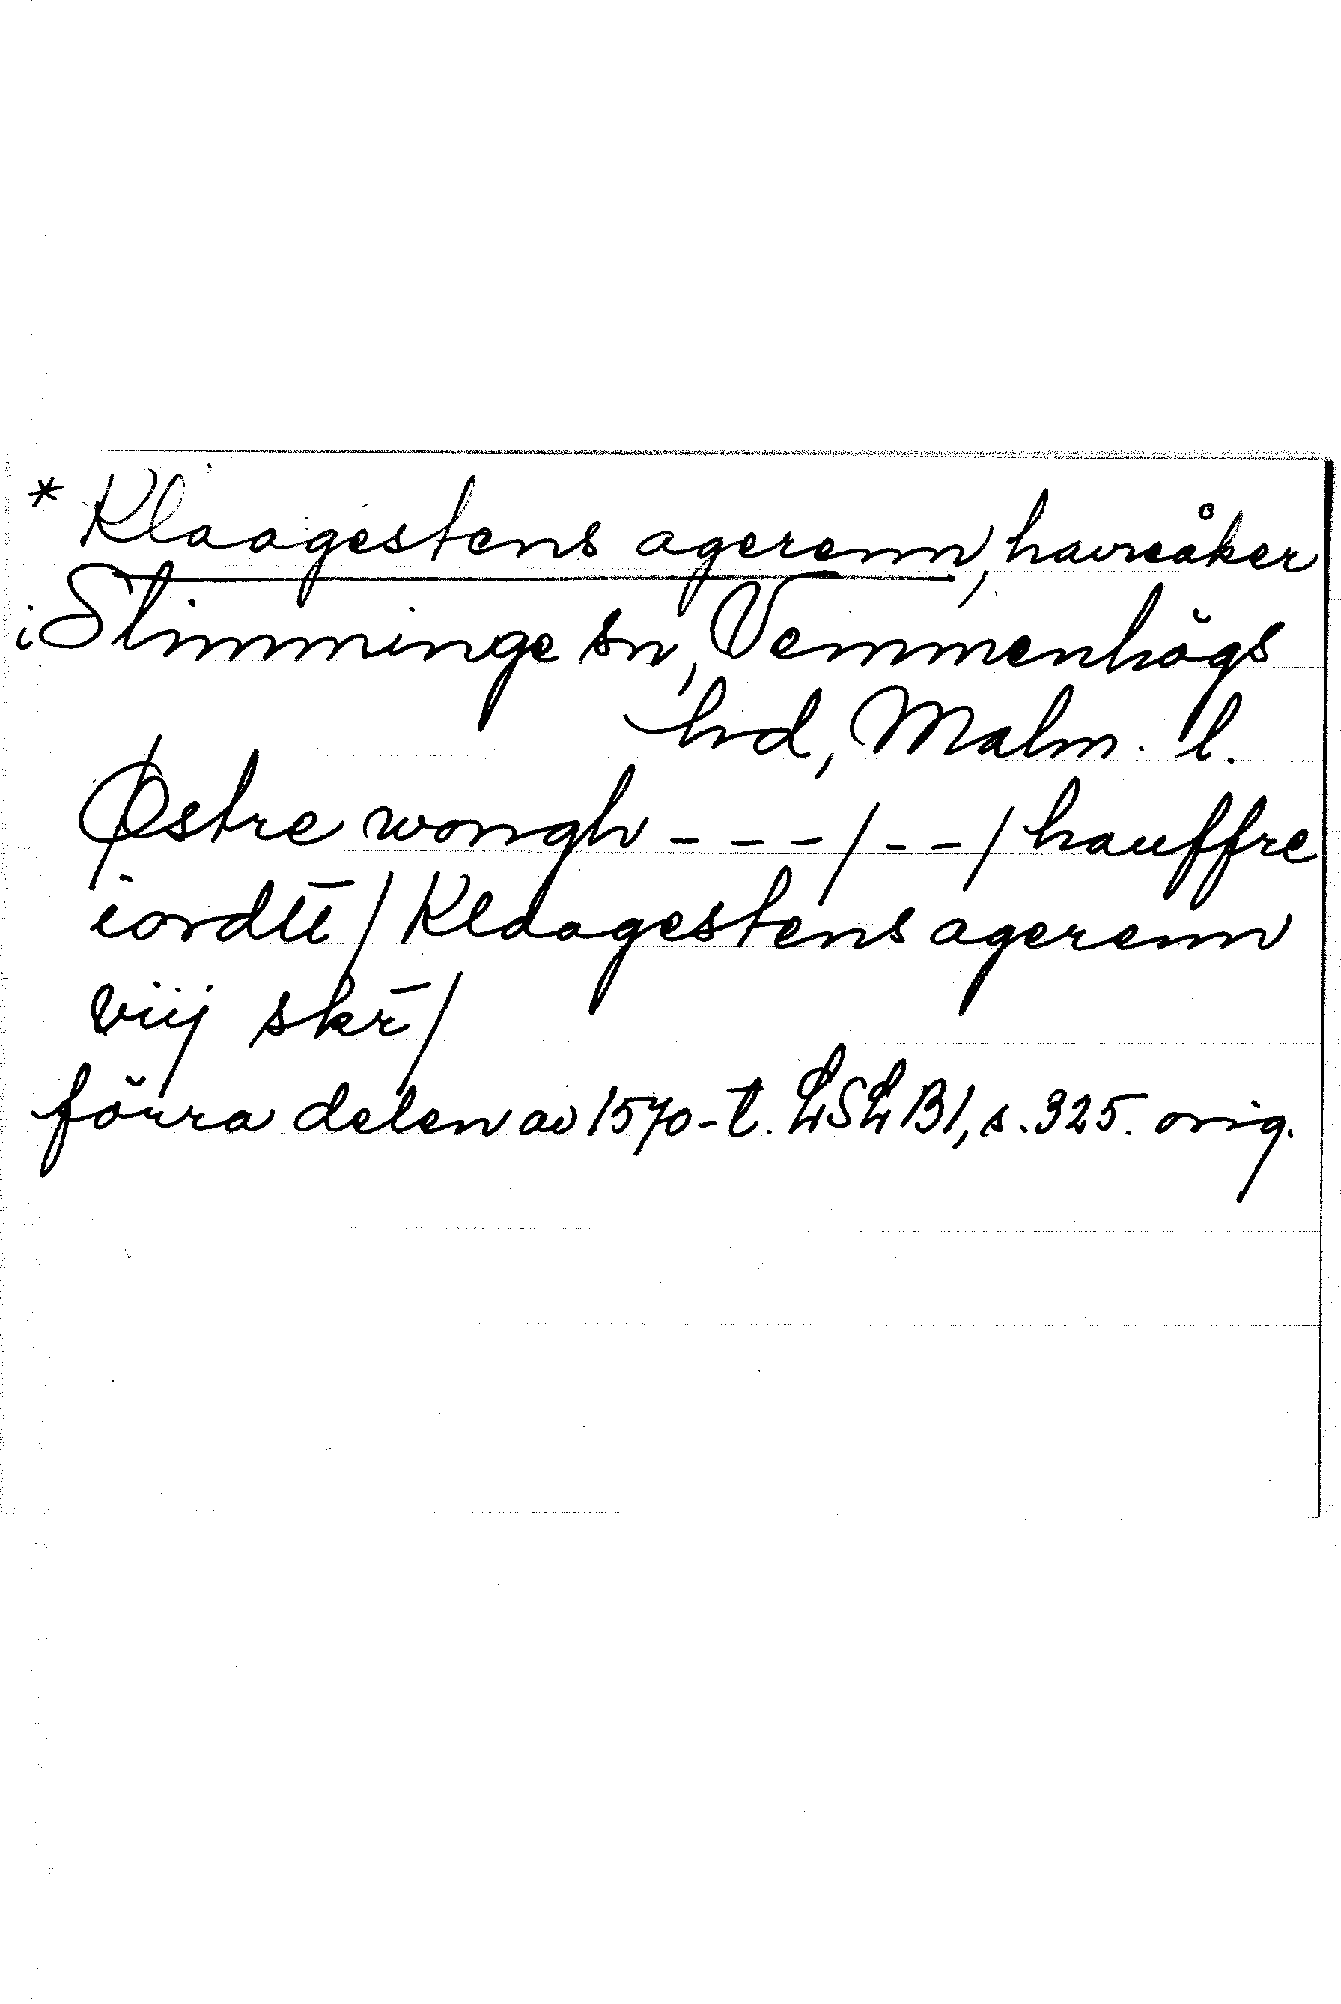 * Klaagestens agerenn, havreåker
i Slimminge sn, Vemmenhögs
hd, Malm. l.
Østre wongh - - - / - - / hauffre
iordtt̄ / Klaagestens agerenn
viij skr̄ /
förra delen av 1570-t. LSLB1, s. 325. orig.